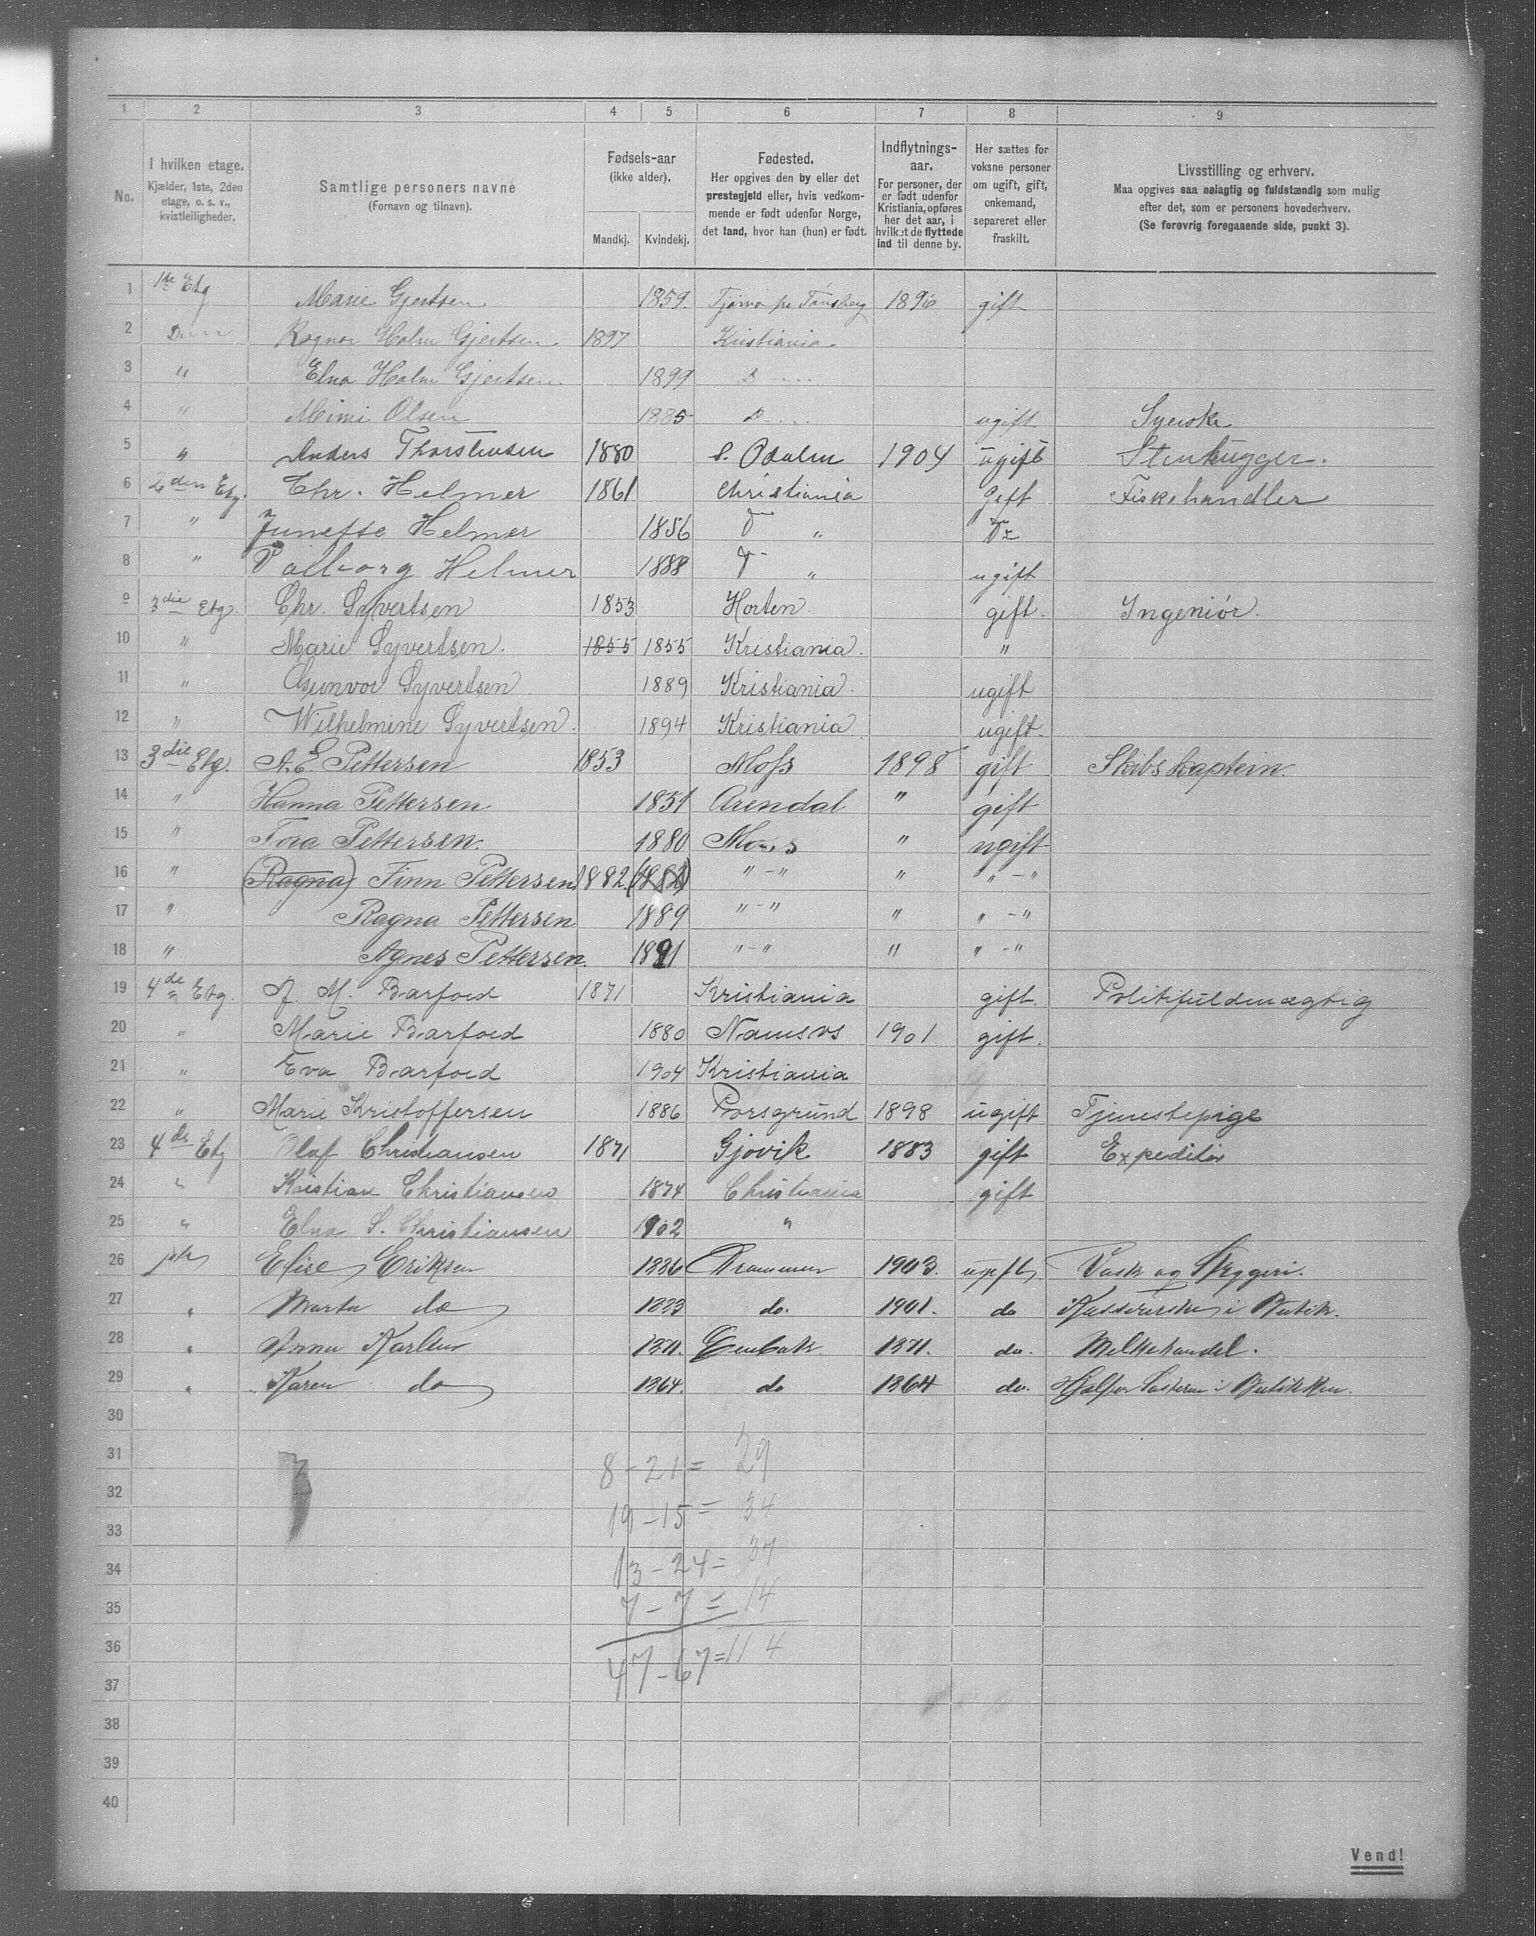 1 2 3 4 5 6 7 8 9
No.
I hvilken etage.
Kjælder, 1ste, 2den
etage, o. s. v.,
kvistleiligheder.
Samtlige personers navne
(Fornavn og tilnavn).
Fødsels-aar
(ikke alder).
Mandkj. Kvindekj.
Fødested.
Her opgives den by eller det
prestegjeld eller, hvis vedkom-
mende er født udenfor Norge,
det land, hvor han (hun) er født.
Indflytnings-
aar.
For personer, der
er født udenfor
Kristiania, opføres
her det aar, i
hvilket de flyttede
ind til denne by.
Her sættes for
voksne personer
om ugift, gift,
enkemand,
separeret eller
fraskilt.
Livsstilling og erhverv.
Maa opgives saa nøiagtig og fuldstændig som mulig
efter det, som er personens hovederhverv.
(Se forøvrig foregaaende side, punkt 3).
1 1ste Etg Marie Gjertsen 1859. Tjømø pr Tønsberg 1896 gift
2 Ragnar Holm Gjertsen 1897 Kristiania
3 " Elna Holm Gjertsen 1899 D
4 " Mimi Olsen 1885 D ugift Syerske
5 " Anders Thorstensen 1880 S. Odalen 1904 ugift Stenhugger.
6 2den Etg. Chr. Helmer 1861 Christiania Gift Fiskehandler
7 " Helmer 1856 "
8 " Valborg Helmer 1888 " ugift
9 3die Etg Chr. Syvertsen 1853 Horten. gift. Ingeniør.
10 " Marie Syvertsen. 1855 1855 Kristiania. "
11 " Gunvor Syvertsen 1889 Kristiania. ugift
12 " Wilhelmine Syvertsen. 1894 Kristiania ugift.
13 3die Etg. A. E. Pettersen 1853 Moss 1898 gift Skibskaptein.
14 " Hanna Pettersen 1851 Arendal " gift
15 " Tora Pettersen. 1880 Moss " ugift
16 " (Ragna) Finn Pettersen 1882 (1882) " - " " " - "
17 " Ragna Pettersen 1889 " - " " " - "
18 " Agnes Pettersen. 1891 " - " " " - "
19 4de Etg. J. M. Barfoed 1871 Kristiania gift. Politifuldmægtig
20 " Marie Barfoed 1880 Namsos 1901 gift.
21 " Eva Barfoed 1904 Kristiania
22 " Marie Kristoffersen 1886 Porsgrund 1898 ugift Tjenestepige
23 4de Etg Olaf Christiansen 1871 Gjøvik 1883 gift Expeditør
24 " Kristian Christiansen 1874 Christiania gift
25 " Elna S. Christiansen 1902 "
26 Elise Eriksen 1886 Drammen 1903. ugift Vask og Strygeri.
27 " Marta do 1883 do. 1901. do i Butik.
28 " Anna Karlsen 1871. Enebak 1871. do. Melkehandel.
29 " Karen do 1864. do 1864 do. Hjælper Søsteren i Butikken.
30
31 8 - 21 = 29
32 19 - 15 = 34
33
34 13 - 24 = 37
35 7 - 7 = 14
36 47 - 67 = 114
37
38
39
40
Vend!